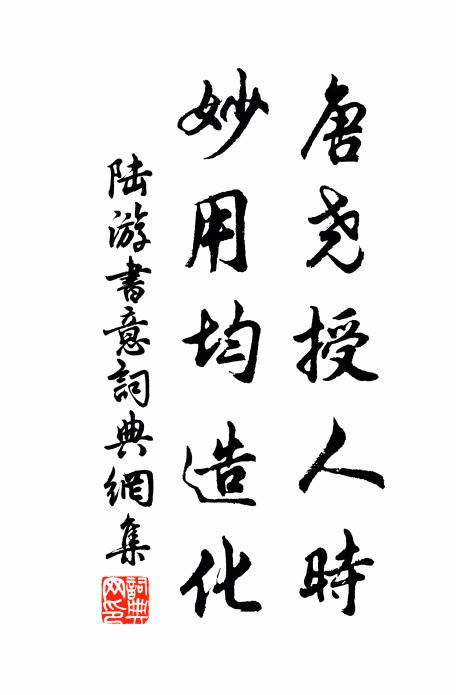 唐尧授人時
妙用均造化
陆游書意詞典網集
詞典
网印